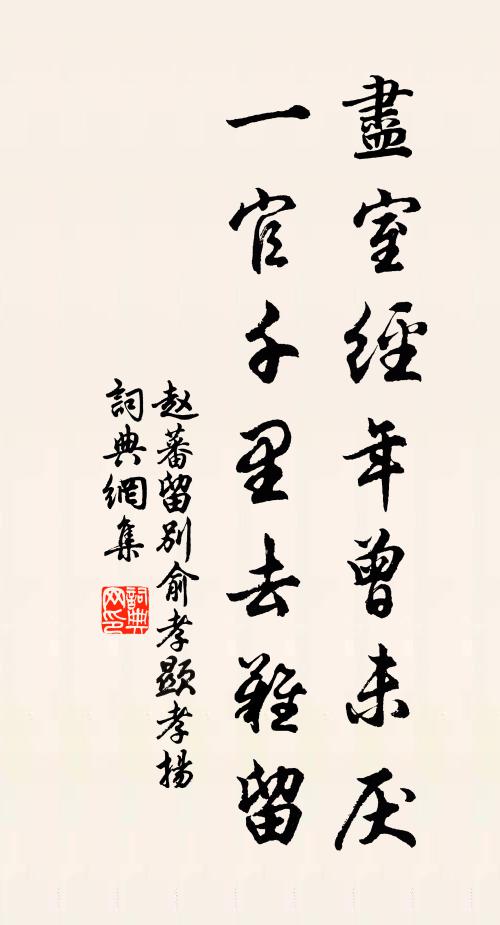 盡室經年曾未厌
一官千里去難留
赵蕃留別俞孝顯孝揚
詞典網集
詞典网印